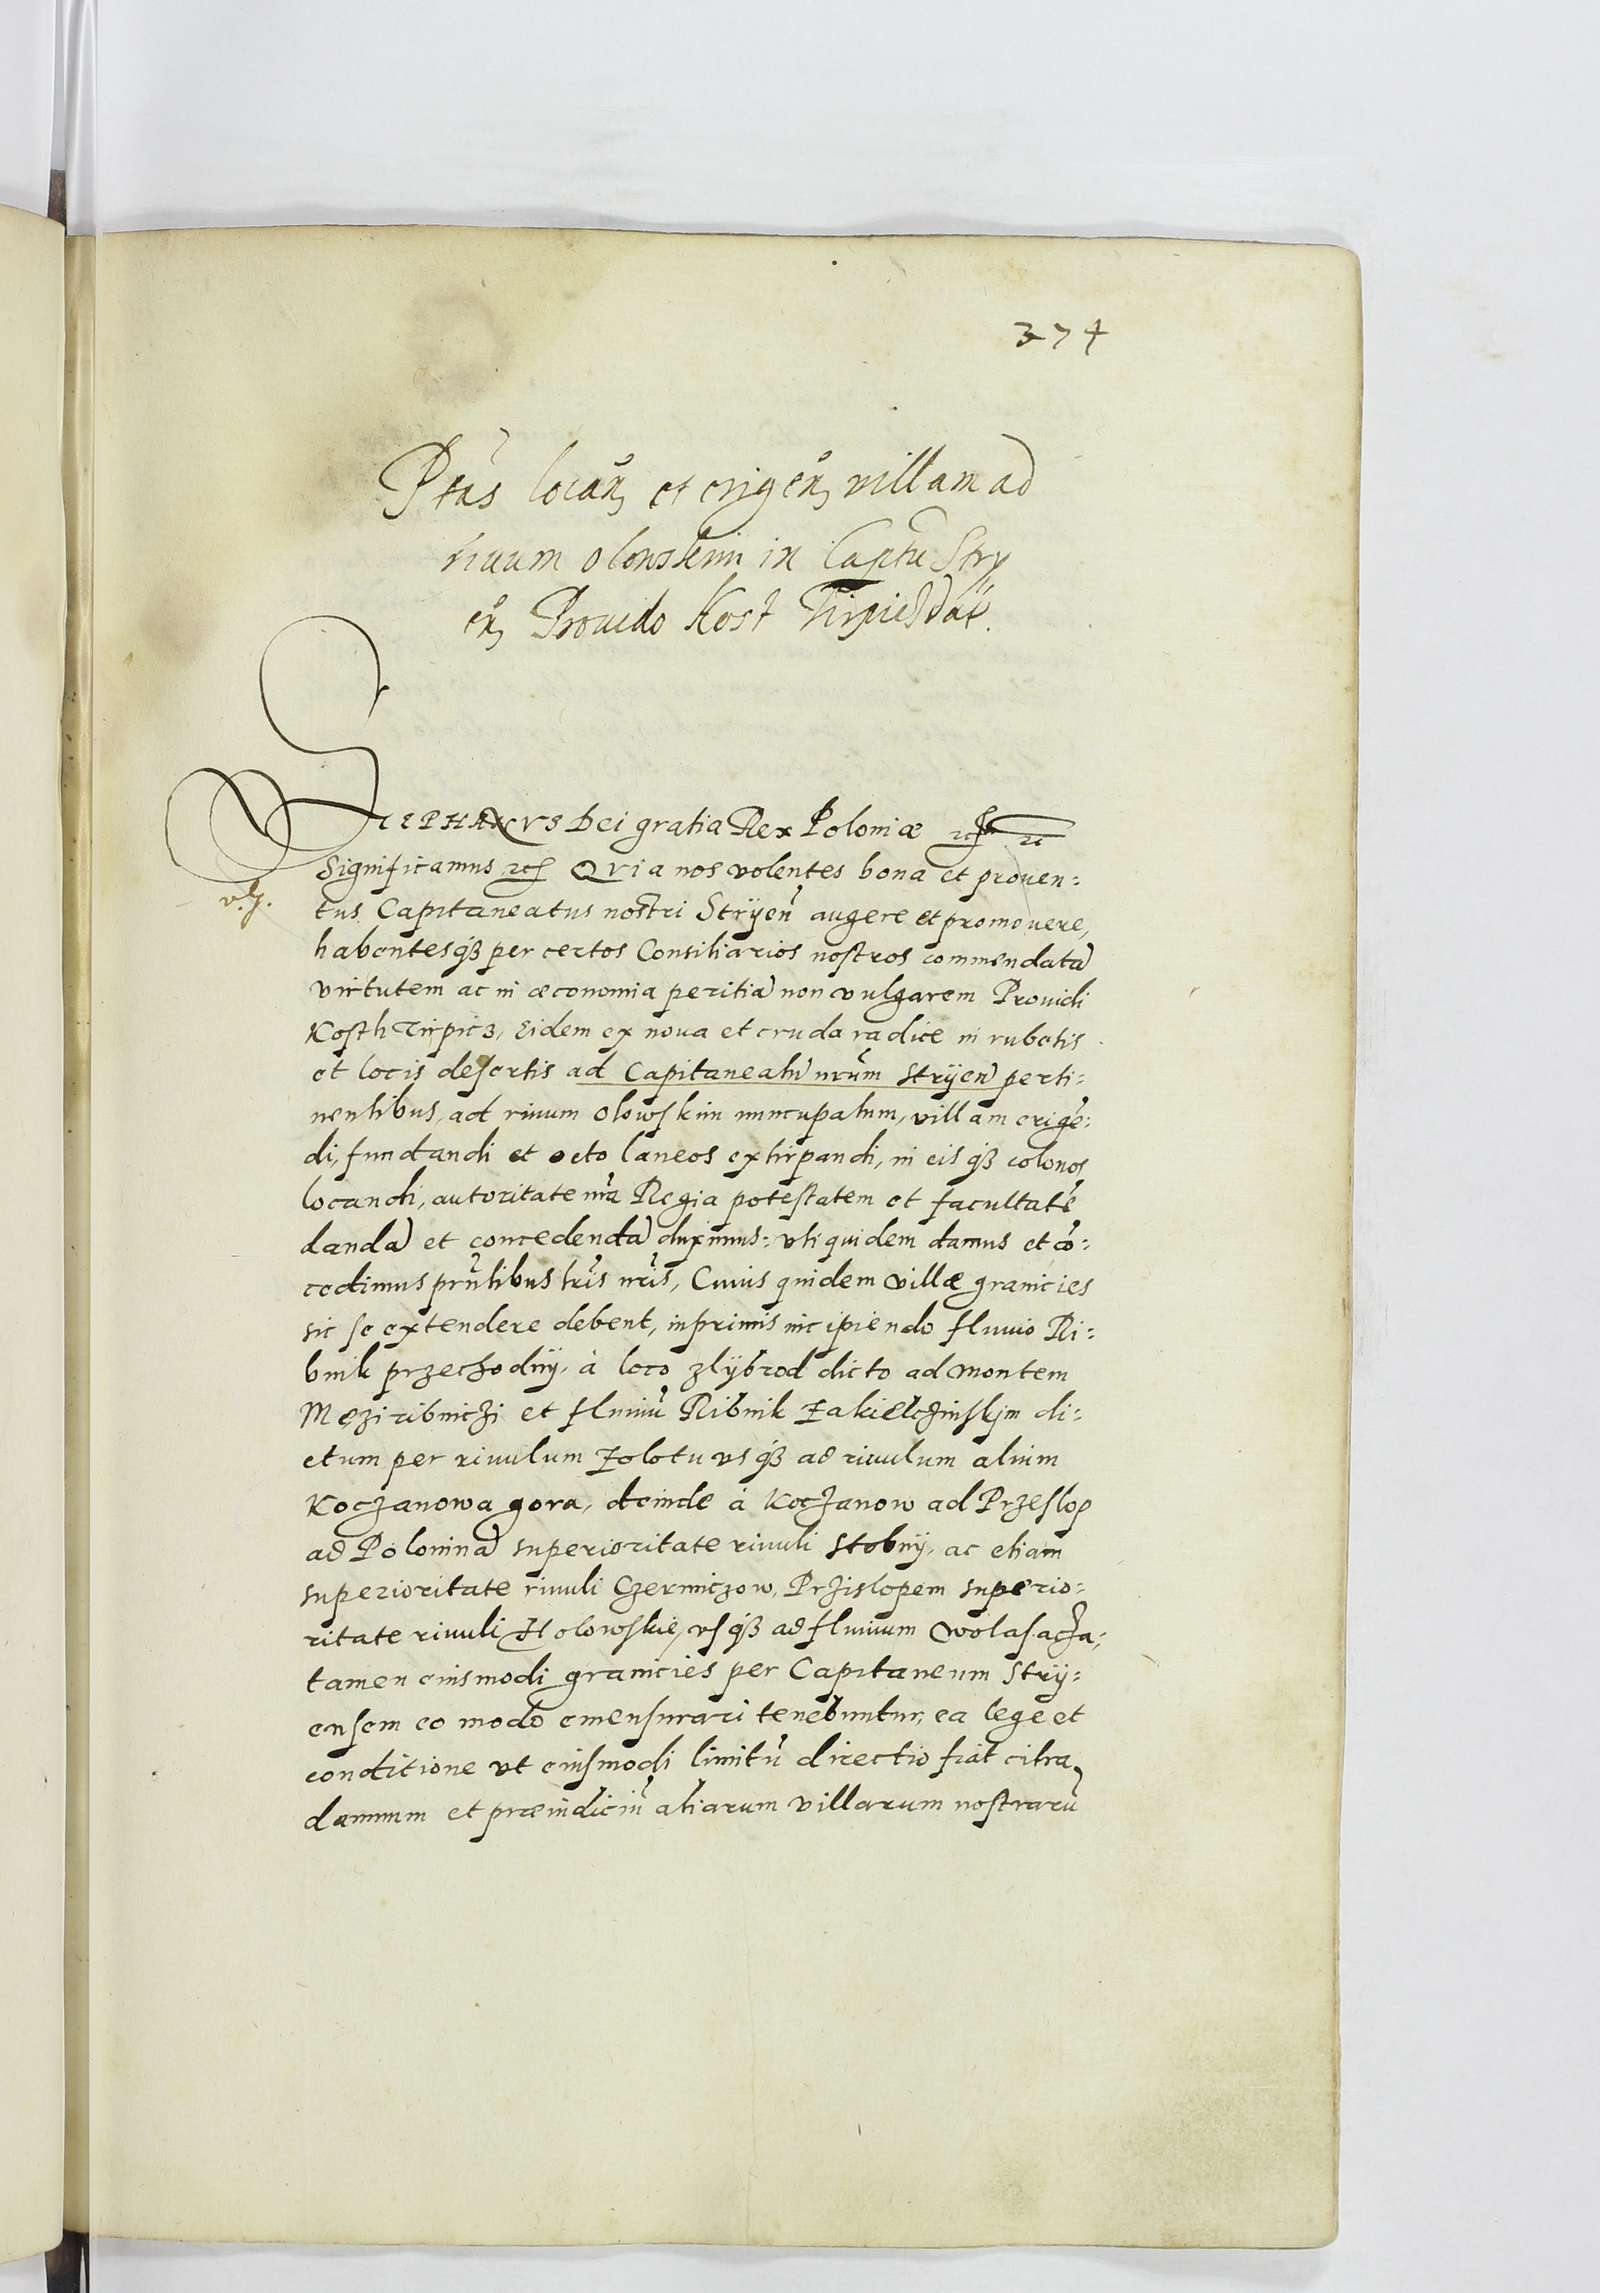 374
Ptās locan̄ et erigen̄ villam ad
riuum olowskim in Captu Stry
en̄ Prouido Kost Tirpicz dat.
STEPHANVS Dei gratia Rex Poloniæ etc. etc
Significamus etc. Qvia nos volentes bona et prouen:
tus Capitaneatus nostri Stryen̄ augere et promouere,
habentesq3 per certos Consiliarios nostros commendatā
virtutem ac in œconomia peritiā non vulgarem Prouidi
Kosth Tirpicz, Eidem ex noua et cruda radice in rubetis
et locis desertis ad Capitaneatū nrūm Stryen̄ perti:
nentibus, ad riuum Olowskim nuncupatum, villam erigē:
di, fundandi et octo laneos extirpandi, in eisq3 colonos
locandi, autoritate nrā Regia potestatem et facultatē
dandā et concedendā duximus: vti quidem damus et cō:
cedimus prn̄tibus lrīs nrīs, Cuius quidem villæ granicies
sic se extendere debent, inprimis incipiendo fluuio Ri:
bnik przechodny, à loco zlybrod dicto ad montem
Męziribniczi et fluuiū Ribnik Zakielczinskim di:
ctum per riuulum Zolotu vsq3 ad riuulum alium
Koczanowa gora, deinde à Koczanow ad Przeslop
ad Poloninā superioritate riuuli Stobny, ac etiam
superioritate riuuli Czerniczow, Przislopem superio:
ritate riuuli Holowskie, vsq3 ad fluuium Wolasacza;
tamen eiusmodi granicies per Capitaneum Stry:
ensem eo modo emensurari tenebuntur, ea lege et
conditione vt eiusmodi limitū directio fiat citra
damnum et præiudiciū aliarum villarum nostrarū